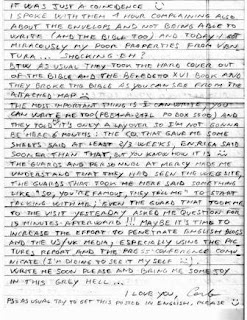 IT WAS JUST A COINCIDENCE
I SPOKE WITH THEM 1 HOUR COMPLAINING ALSO
ABOUT THE ENVELOPS AND NOT BEING ABLE TO
WRITE (AND THE BIBLE TOO) AND TODAY I
MIRACOUSLY MY POOR PROPERTIES FROM VEN
TURA ... SHOCKING EH?
BTW AS USUAL THEY TOOK THE HARD COVER OUT
OF THE BIBLE AND THE BENEDETO XVI BOOK AND
THEY BROKE THE BIBLE AS YOU CAN SEE FROM THE
ATTACHED MAP
THE MOST IMPORTANT THING IS I CAN WRITE, YOU
CAN WRITE ME TOO PO BOX 5120) AND
THEY TOLD IT'S ONLY A LAYOVER SO I'M NOT GOING
BE HERE 6 MONTHS; THE COP THAT GAVE ME SOME
SHEETS SAID AT LEAST 2/3 WEEKS, ENRICA SAID
SOONER THEN THAT, BUT YOU KNOW HOW IT IS
THE GUARDS AND A AT MERCY MADE ME
UNDERSTAND THAT THEY HAD SEEN THE WEBSITE,
THE GUARDS THAT TOOK ME HERE SAID SOMETHING
LIKE "SO, YOU'RE FAMOUS, THEY TELL ME" TO START
TALKING WITH ME; EVEN THE GUARD THAT TOOK ME
TO THE VISIT YESTERDAY ASKED ME QUESTION FOR
15 MINUTES AFTERWARD!!! MAYBE IT'S TIME TO
INCREASE THE EFFORT TO PENETRATE ENGLISH BLOGS
AND THE US/UK MEDIA, ESPECIALLY USING THE PIC
TURES, REPORT AND THE PRESS CONFERENCE COMMU
NICATE (I'M DIEING TO SEE IT MY SELF
WRITE ME SOON PLEASE AND BRING ME SOME JOY
IN THIS GREY HELL...
I LOVE YOU, Carlo
PS: AS USUAL TRY TO GET THIS POSTED IN ENGLISH, PLEASE